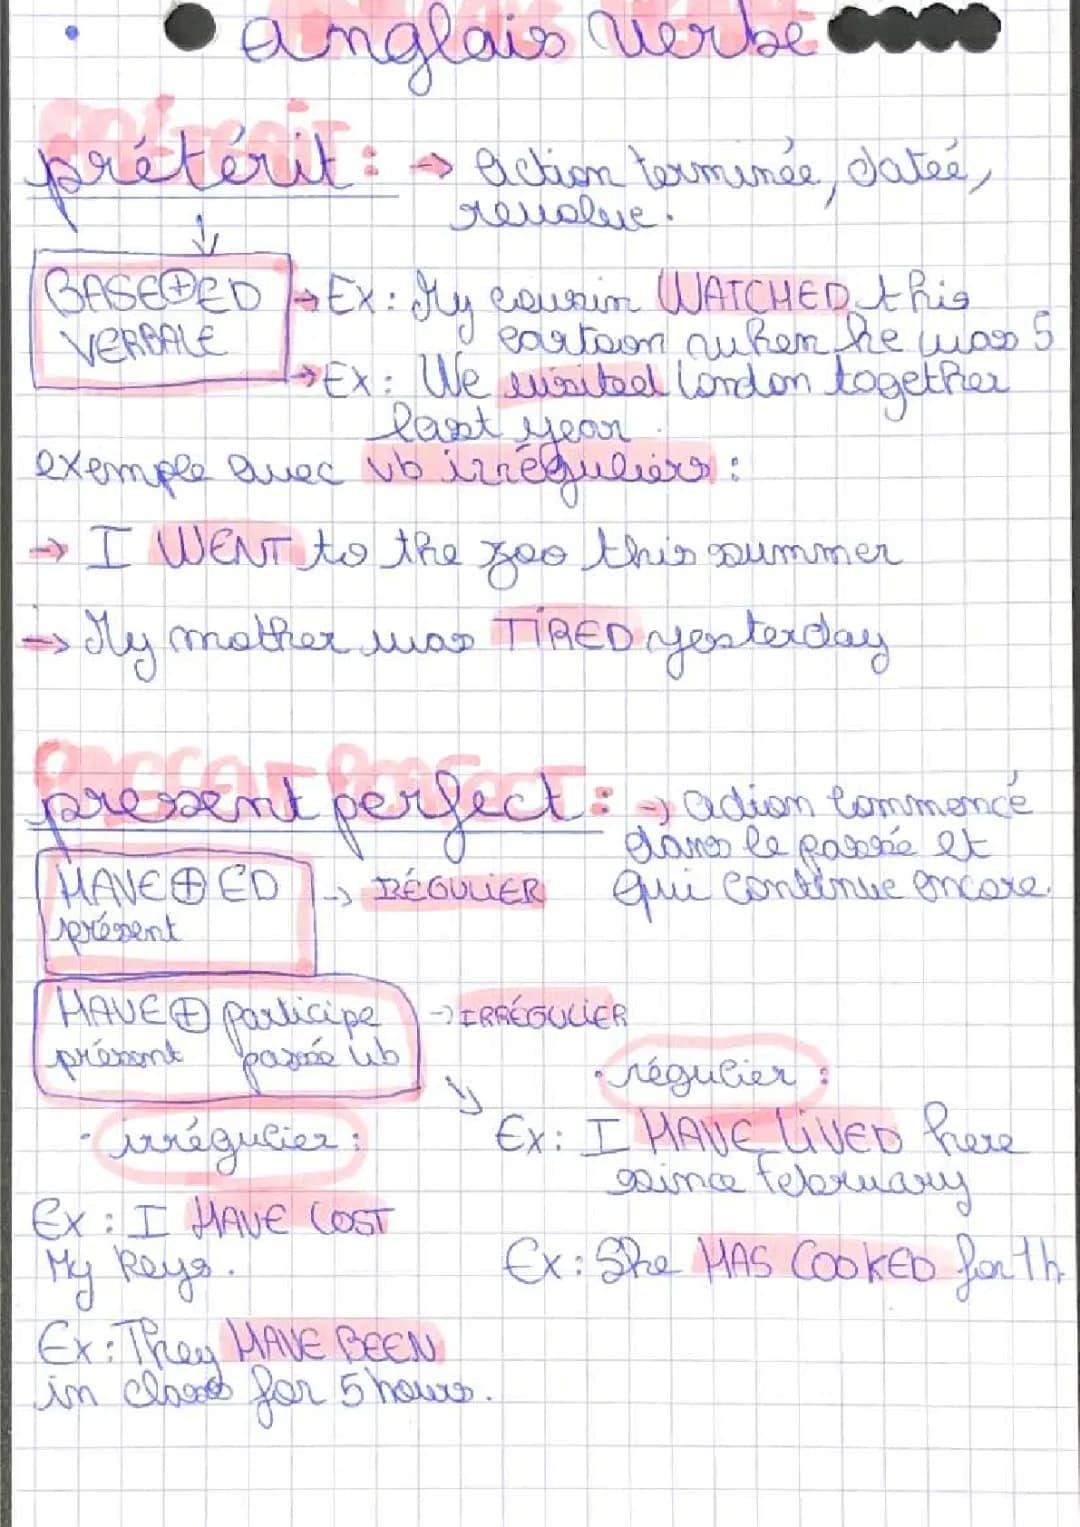 anglais verbe
prétérit : → action terminée, datée,
révolue.
BASE + ED
VERBALE
→ Ex : My cousin WATCHED this
cartoon when he was 5
→ Ex : We visited London together
last year.
exemple avec vb irréguliers :
→ I WENT to the zoo this summer
→ My mother was TIRED yesterday
present perfect : → action commencé
dans le passée et
qui continue encore.
HAVE + ED → RÉGULIER
présent
HAVE + participe → IRRÉGULIER
présent passée vb
• régulier :
Ex : I HAVE LIVED here
since february
Ex : She HAS COOKED for 1h
• irrégulier :
Ex : I HAVE LOST
My keys.
Ex : They HAVE BEEN
in class for 5 hours.